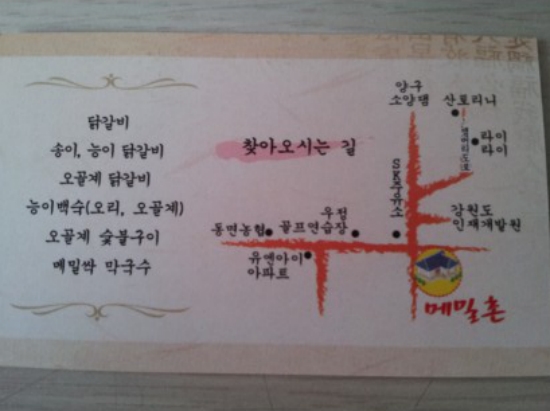 닭갈비
송이, 능이 닭갈비
오골계 닭갈비
능이백숙(오리, 오골계)
오골계 숯불구이
메밀싹 막국수
찾아오시는 길
양구
소양댐
산토리니
라이
라이
SK주유소
강원도
인재개발원
우정
골프연습장
동면농협
유엔아이
아파트
메밀촌